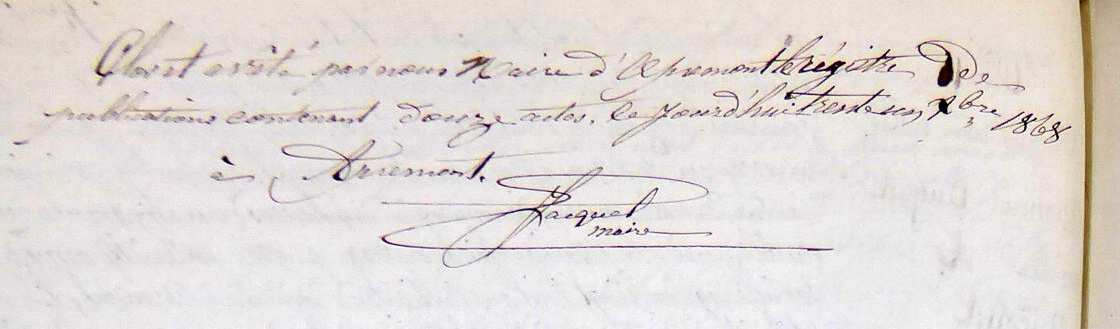 Clos et arrêté par nous Maire d'Apremont le régistre de
publications contenant douze actes. le jourd'hui trente un Xbre 1868
à Apremont.
Jacquel
maire